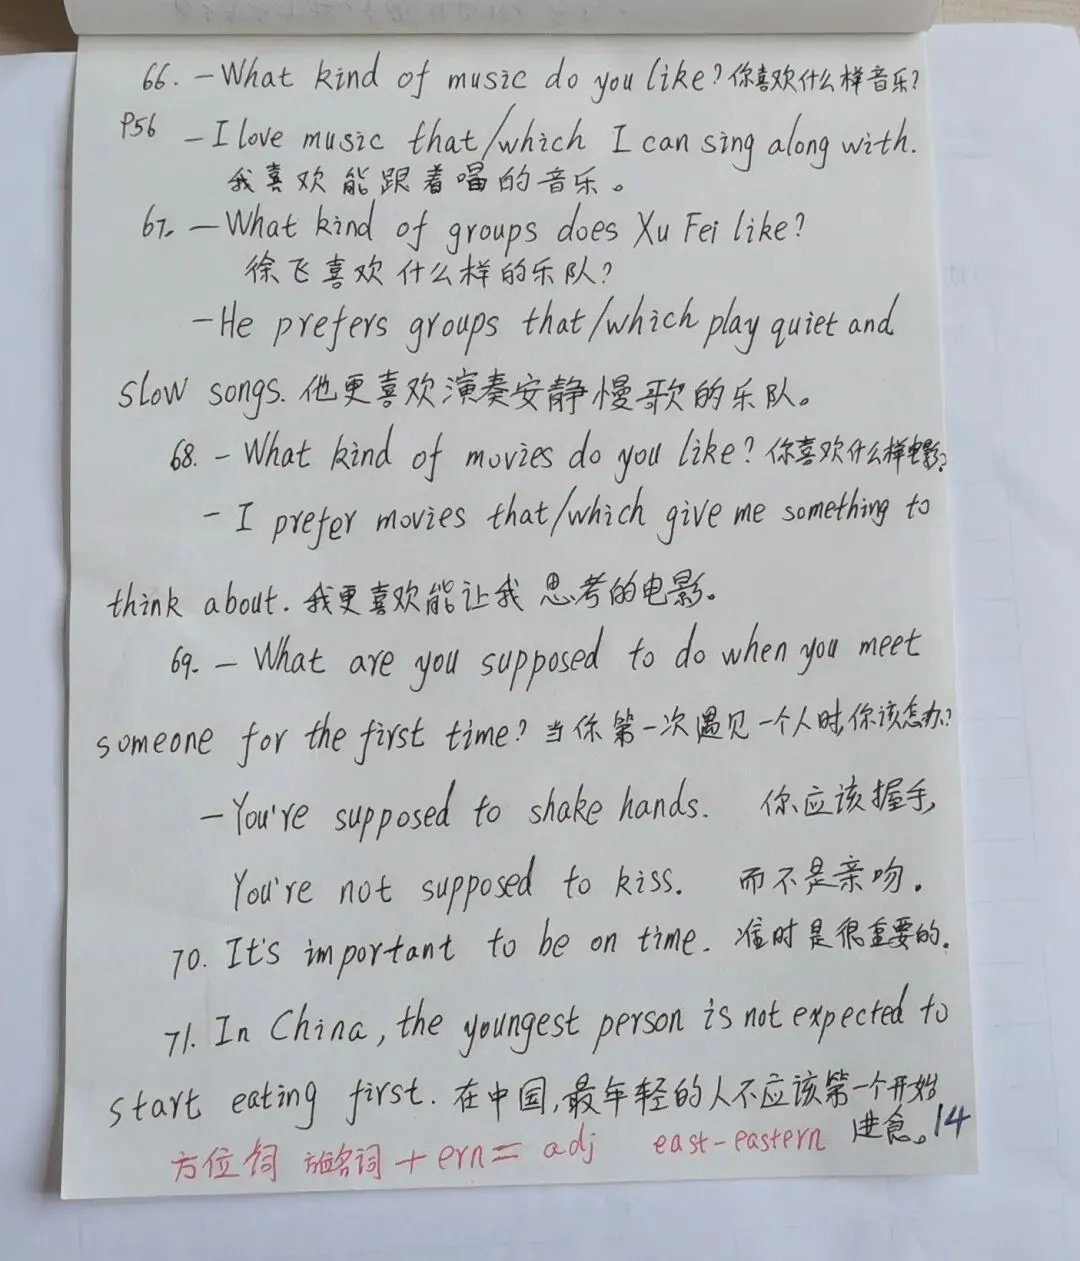 66. -What kind of music do you like? 你喜欢什么样音乐?
P56 -I love music that/which I can sing along with.
我喜欢能跟着唱的音乐。
67. -What kind of groups does Xu Fei like?
徐飞喜欢什么样的乐队?
-He prefers groups that/which play quiet and
slow songs. 他更喜欢演奏安静慢歌的乐队。
68. -What kind of movies do you like? 你喜欢什么样电影?
-I prefer movies that/which give me something to
think about. 我更喜欢能让我思考的电影。
69. -What are you supposed to do when you meet
someone for the first time? 当你第一次遇见一个人时,你该怎办?
-You're supposed to shake hands. 你应该握手,
You're not supposed to kiss. 而不是亲吻。
70. It's important to be on time. 准时是很重要的。
71. In China, the youngest person is not expected to
start eating first. 在中国,最年轻的人不应该第一个开始
进食。14
方位词 方位名词+ern=adj east-eastern